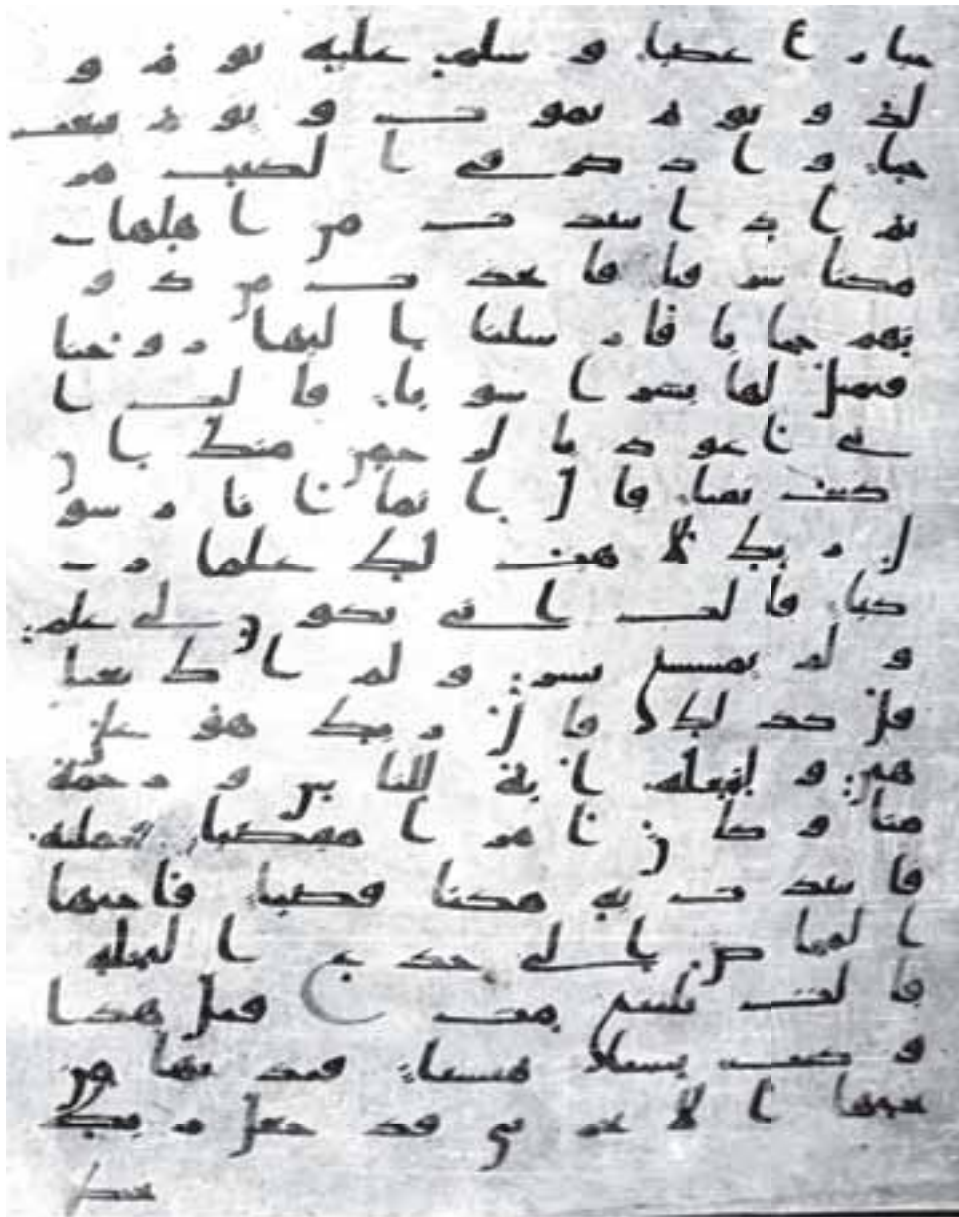 جبارا عصيا و سلم عليه يوم و
لد و يوم يموت و يوم يبعث
حيا و اذكر في الكتب مر
يم اذ انتبذت من اهلها
مكنا شرقيا فاتخذت من دو
نهم حجابا فارسلنا اليها روحنا
فتمثل لها بشرا سويا قالت ا
ني اعوذ بالرحمن منك ان
كنت تقيا قال انما انا رسو
ل ربك لاهب لك غلما ز
كيا قالت اني يكون لي غلم
و لم يمسسني بشر و لم اك بغيا
قل كذلك قال ربك هو علي
هين و لنجعله اية للناس و رحمة
منا و كان امرا مقضيا فحملته
فانتبذت به مكنا قصيا فاجاها
المخاض الي جذع النخلة
قالت يليتني مت قبل هذا
و كنت نسيا منسيا فنديها من
تحتها الا تحزني قد جعل ربك
تحت